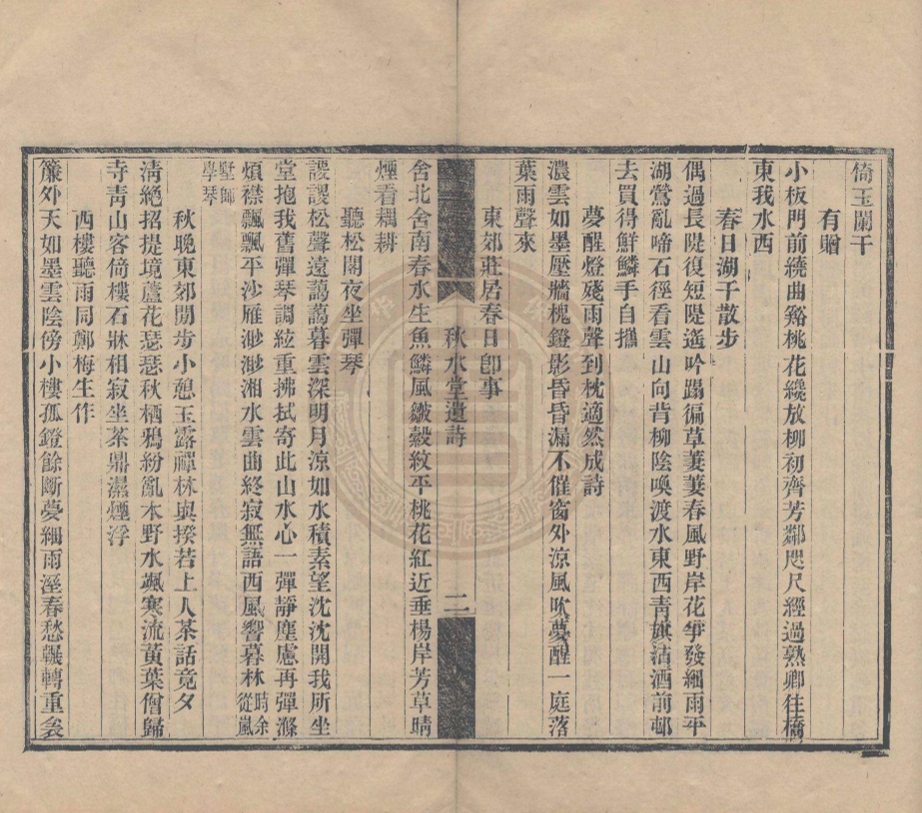 倚玉闌干
有贈
小板門前繞曲谿桃花纔放柳初齊芳鄰咫尺經過熟卿往橋
東我水西
春日湖干散步
偶過長隄復短隄遙吟蹋徧草萋萋春風野岸花爭發細雨平
湖鶯亂啼石徑看雲山向背柳陰喚渡水東西青旗沽酒前邨
去買得鮮鱗手自攜
夢醒燈殘雨聲到枕適然成詩
濃雲如墨壓牆槐鐙影昏昏漏不催窗外涼風吹夢醒一庭落
葉雨聲來
東郊莊居春日卽事
秋水堂遺詩
二
舍北舍南春水生魚鱗風皺縠紋平桃花紅近垂楊岸芳草晴
煙看耦耕
聽松閣夜坐彈琴
謖謖松聲遠藹藹暮雲深明月涼如水積素望沈沈開我所坐
堂抱我舊彈琴調絃重拂拭寄此山水心一彈靜塵慮再彈滌
煩襟飄飄平沙雁渺渺湘水雲曲終寂無語西風響暮林時余從嵐
墅師學琴
秋晚東郊閒步小憩玉露禪林與揆若上人茶話竟夕
淸絕招提境蘆花瑟瑟秋栖鴉紛亂本野水颯寒流黃葉僧歸
寺靑山客倚樓石牀相寂坐茶鼎濕煙浮
西樓聽雨同鄭梅生作
簾外天如墨雲陰傍小樓孤鐙餘斷夢細雨溼春愁輾轉重衾